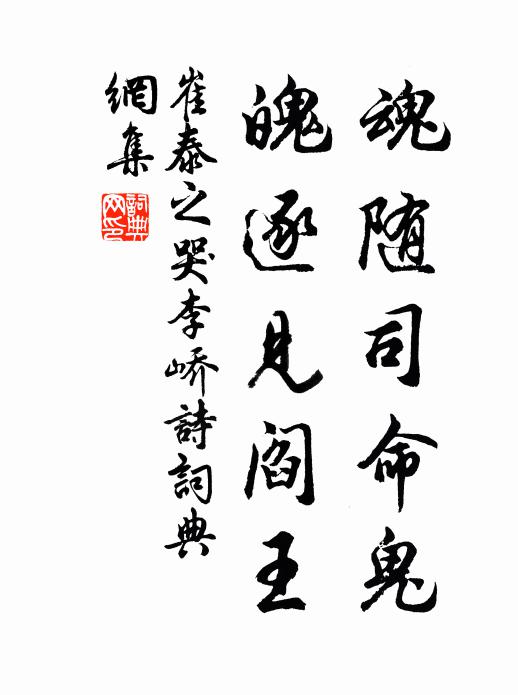 魂随司命鬼
魄逐見阎王
崔泰之哭李嶠詩詞典
網集
詞典
网印